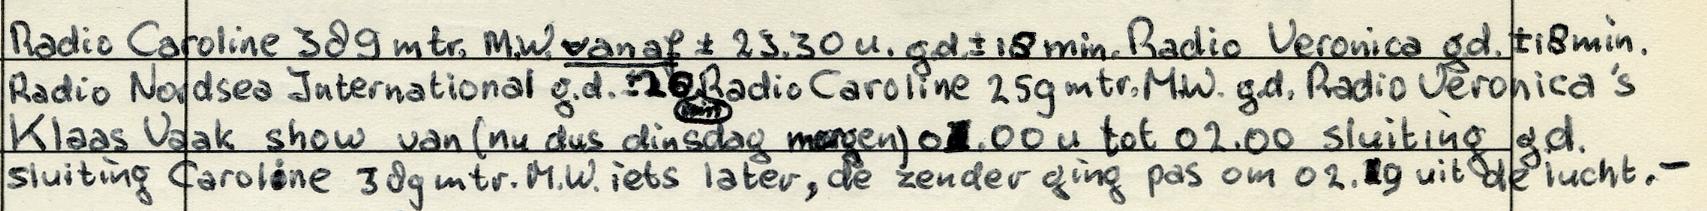 Radio Caroline 389 mtr. M.W. vanaf ± 23.30 u. gd. ± 18 min. Radio Veronica gd. ±18 min.
Radio Nordsea International g.d. ±26 min Radio Caroline 259 mtr. M.W. g.d. Radio Veronica's
Klaas Vaak show van (nu dus dinsdag morgen) 01.00 u tot 02.00 sluiting gd.
sluiting Caroline 389 mtr. M.W. iets later, de zender ging pas om 02.19 uit de lucht. –